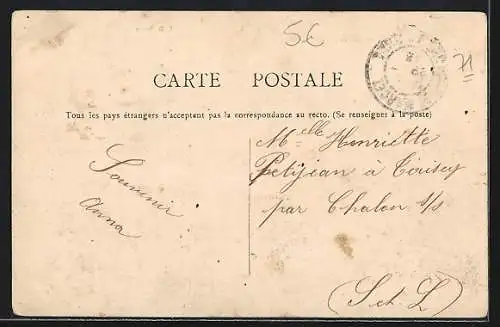 5€
71
CARTE POSTALE
Tous les pays étrangers n'acceptent pas la correspondance au recto. (Se renseigner à la poste)
Souvenir
Anna
Melle Henriette
Petijean à
par Chalon s/s
(S et L)